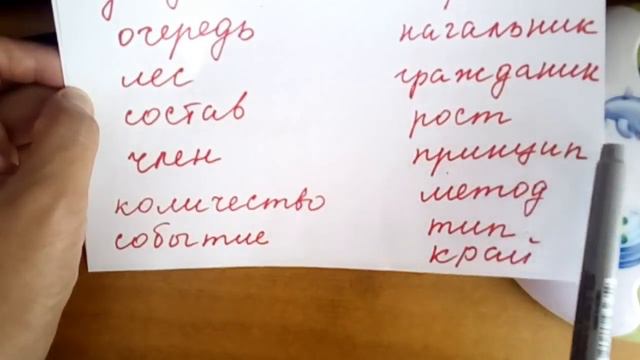 очередь
лес
состав
член
количество
событие
начальник
гражданик
рост
принцип
метод
тип
край